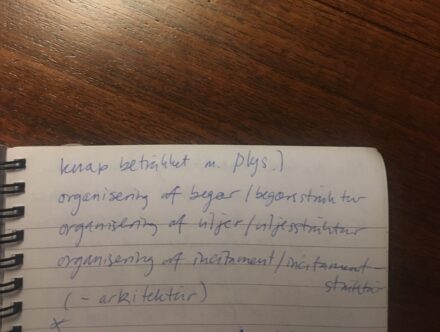 knap betrækket m. plys.)
organisering af begær / begærsstruktur
organisering af viljer / viljesstruktur
organisering af incitament / incitament-
struktur
(- arkitektur)
x